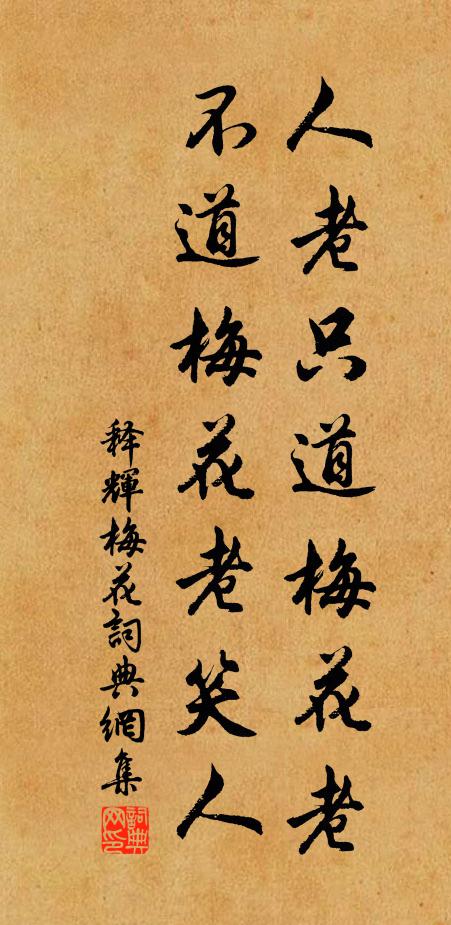 人老只道梅花老
不道梅花老笑人
释輝梅花詞典網集
詞典网印